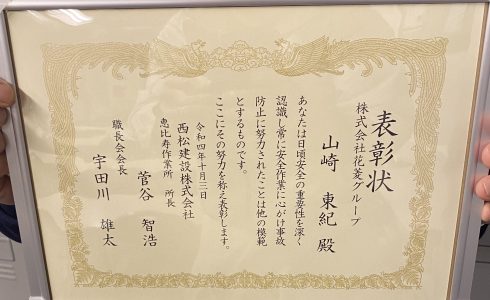 表彰状
株式会社花菱グループ
山崎 東紀 殿
あなたは日頃安全の重要性を深く
認識し常に安全作業に心がけ事故
防止に努力されたことは他の模範
とするものです。
ここにその努力を称え表彰します。
令和四年十月三日
西松建設株式会社
恵比寿作業所 所長
菅谷 智浩
職長会会長
宇田川 雄太